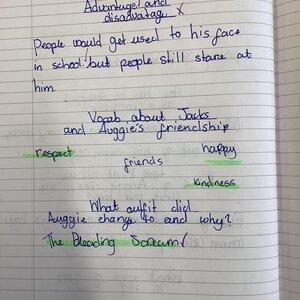 Advantage and
disadvantage
People would get used to his face
in school but people still stare at
him
Vocab about Jacks
and Auggie's friendship
respect
happy
friends
kindness
What outfit did
Auggie change to and why?
The Bleeding Scream